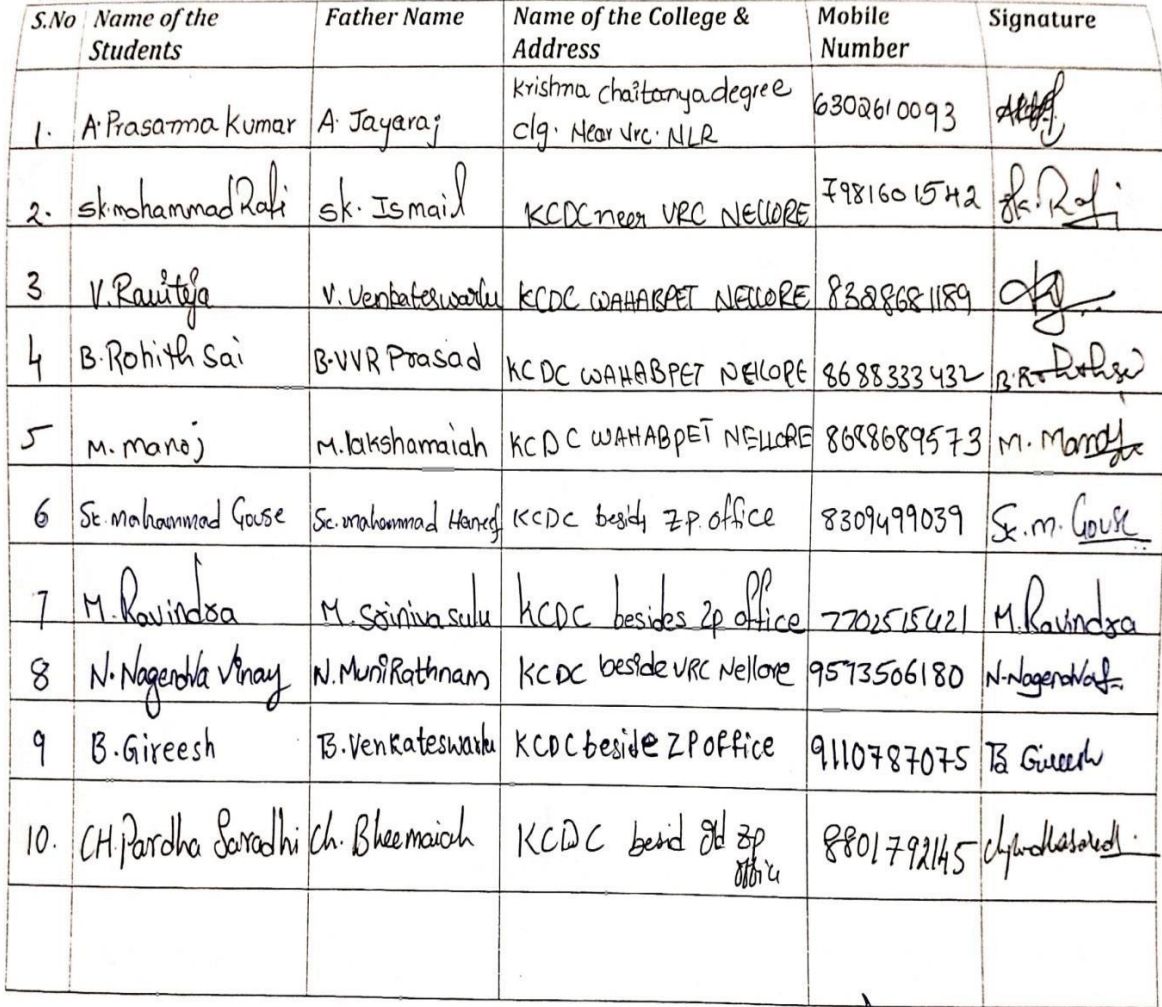 S.No Name of the Students Father Name Name of the College & Address Mobile Number Signature
1. A. Prasanna Kumar A. Jayaraj Krishna chaitanya degree clg. Near vrc. NLR 6302610093
2. sk.mohammad Rafi sk. Ismail KCDC neer VRC NELLORE 7981601542 sk. Rafi
3 V. Raviteja V. Venkateswarlu KCDC WAHABPET NELLORE 8328681189
4 B. Rohith Sai B. VVR Prasad KCDC WAHABPET NELLORE 8688333432 B. Rohithsai
5 M. manoj M. lakshamaiah KCDC WAHABPET NELLORE 8688689573 M. Manoj
6 Sk. mahammad Gouse Sk. mahammad Haneef KCDC besid ZP. office 8309499039 Sk. m. Gouse
7 M. Ravindra M. Srinivasulu KCDC besides zp office 7702515421 M. Ravindra
8 N. Nagendra Vinay N. Muni Rathnam KCDC beside VRC Nellore 9573506180 N. Nagendra
9 B. Gireesh B. Venkateswarlu KCDC beside ZP office 9110787075 B Gireesh
10. CH. Pardha Saradhi Ch. Bheemaiah KCDC besid old zp office 8801792145